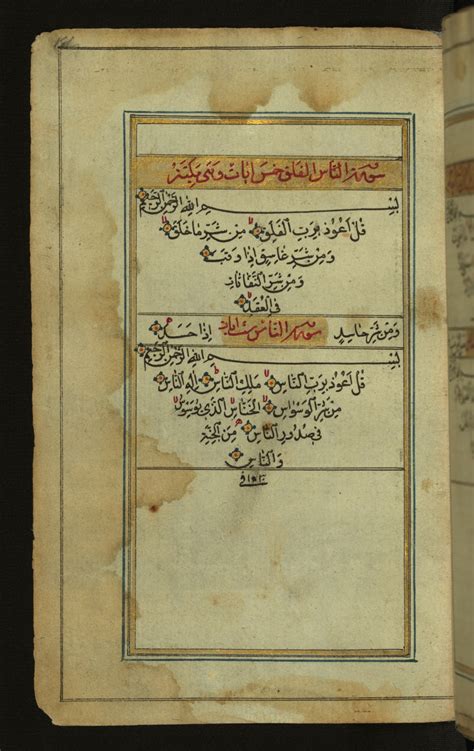 سورة الناس الفلق خمس ايات وهي مكية
بسم الله الرحمن الرحيم
قل اعوذ برب الفلق من شر ما خلق
ومن شر غاسق اذا وقب
ومن شر النفاثات
في العقد
ومن شر حاسد سورة الناس ست ايات اذا حسد
بسم الله الرحمن الرحيم
قل اعوذ برب الناس ملك الناس اله الناس
من شر الوسواس الخناس الذي يوسوس
في صدور الناس من الجنة
والناس